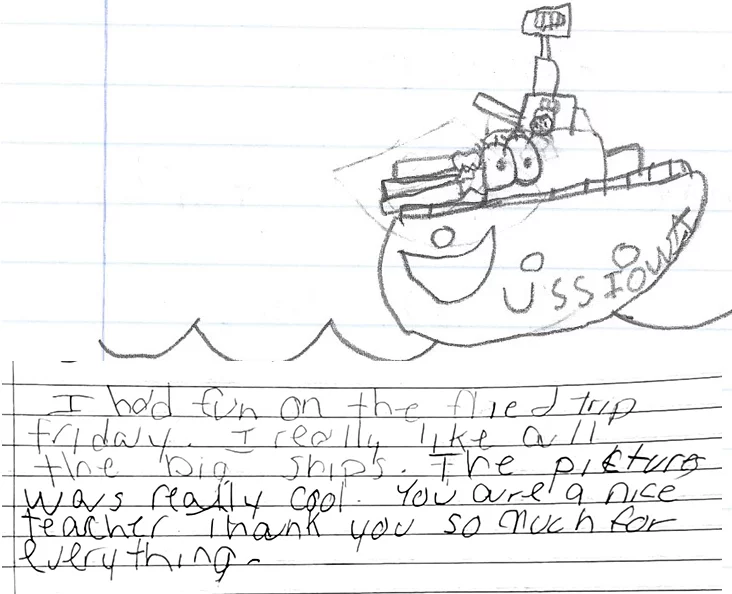 USS IOWA
I had fun on the flied trip
friday. I really like all
the big ships. The picture
was really cool. You are a nice
teacher thank you so much for
everything.